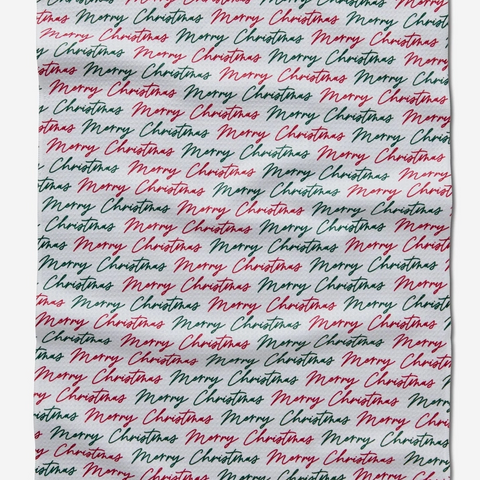 Merry Christmas Merry Christmas Merry Christmas
Merry Christmas Merry Christmas Merry Christmas
Merry Christmas Merry Christmas Merry
Merry Christmas Merry Christmas Merry Christmas
Merry Christmas Merry Christmas Merry
Merry Christmas Merry Christmas Merry Christmas
Merry Christmas Merry Christmas Merry
Merry Christmas Merry Christmas Merry Christmas
Christmas Merry Christmas Merry Christmas Merry
Merry Christmas Merry Christmas Merry Christmas
Merry Christmas Merry Christmas Merry Christmas
Christmas Merry Christmas Merry Christmas Merry
Merry Christmas Merry Christmas Merry Christmas
Christmas Merry Christmas Merry Christmas Merry
Merry Christmas Merry Christmas Merry Christmas
Christmas Merry Christmas Merry Christmas Merry
Merry Christmas Merry Christmas Merry Christmas
Christmas Merry Christmas Merry Christmas Merry
Merry Christmas Merry Christmas Merry Christmas
Christmas Merry Christmas Merry Christmas Merry
Merry Christmas Merry Christmas Merry Christmas
Christmas Merry Christmas Merry Christmas Merry
Merry Christmas Merry Christmas Merry Christmas
Merry Christmas Merry Christmas Merry